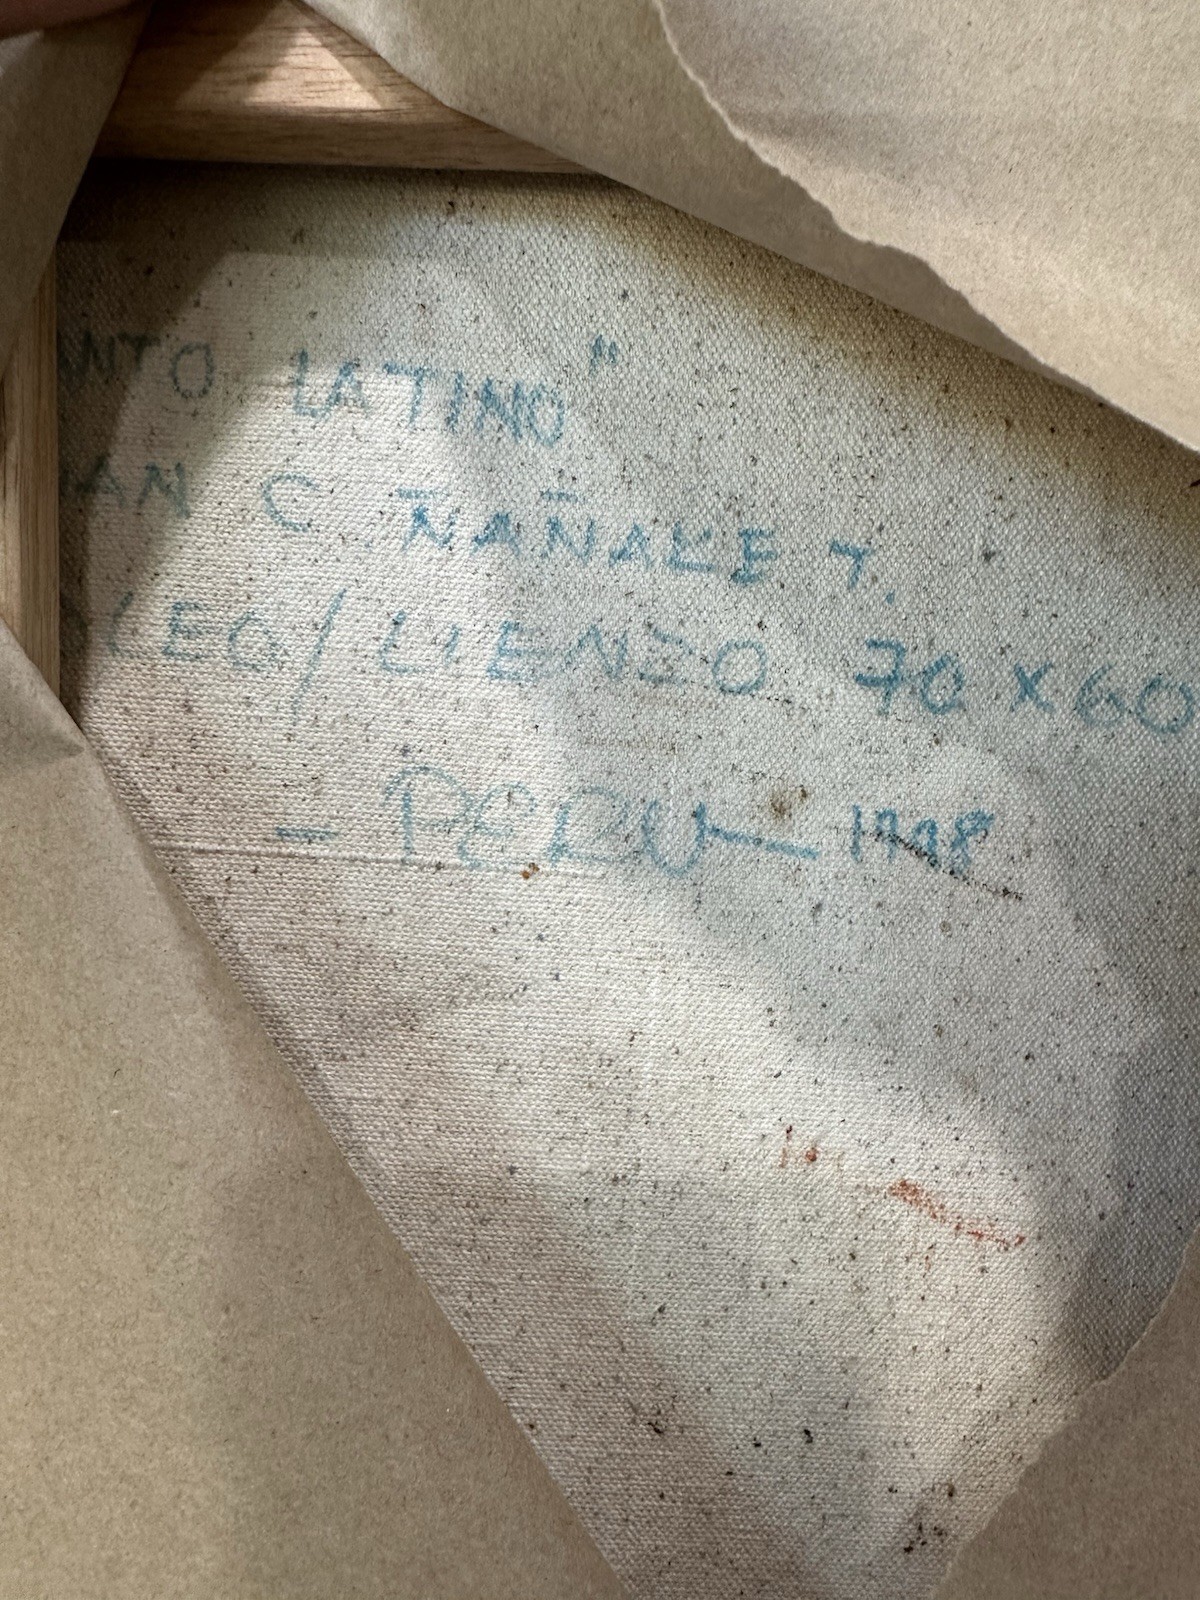 NTO LATINO"
AN C ÑAÑAKE T.
OLEO/LIENZO 70 X 60
- PERU - 1998